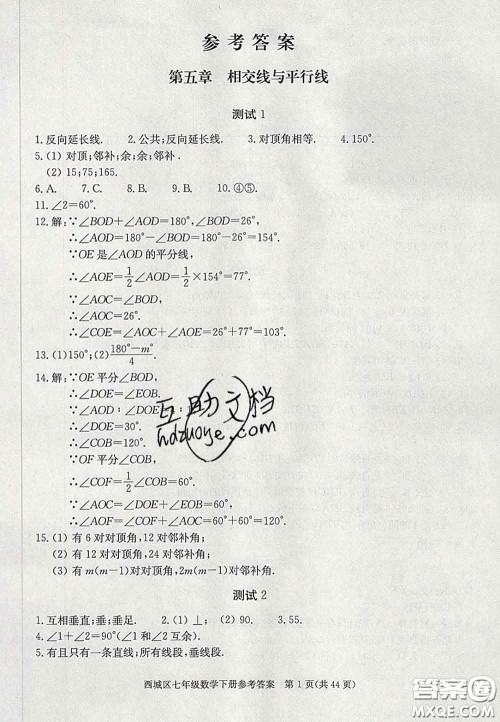 参考答案
第五章 相交线与平行线
测试1
1.反向延长线. 2.公共;反向延长线. 3.对顶角相等. 4.150°.
5.(1)对顶;邻补;余;余;邻补.
(2)15;75;165.
6.A. 7.C. 8.B. 9.D. 10.④⑤.
11.∠2=60°.
12.解:∵∠BOD+∠AOD=180°,∠BOD=26°,
∴∠AOD=180°-∠BOD=180°-26°=154°.
∵OE是∠AOD的平分线,
∴∠AOE=1/2∠AOD=1/2×154°=77°.
∵∠AOC=∠BOD,
∴∠AOC=26°.
∴∠COE=∠AOC+∠AOE=26°+77°=103°.
13.(1)150°;(2)(180°-m°)/4.
14.解:∵OE平分∠BOD,
∴∠DOE=∠EOB.
∵∠AOD∶∠DOE
∴∠DOE=30°.
∴∠COB=120°.
∵OF平分∠COB,
∴∠COF=1/2∠COB=60°.
∵∠AOC=∠DOE+∠EOB=60°,
∴∠AOF=∠COF+∠AOC=60°+60°=120°.
15.(1)有6对对顶角,12对邻补角;
(2)有12对对顶角,24对邻补角;
(3)有m(m-1)对对顶角,2m(m-1)对邻补角.
测试2
1.互相垂直;垂;垂足. 2.(1)⊥;(2)90. 3.55.
4.∠1+∠2=90°(∠1和∠2互余).
5.有且只有一条直线;所有线段;垂线段.
西城区七年级数学下册参考答案 第1页(共44页)
互助文档
hdzuoye.com
答案圈
MXQE.COM